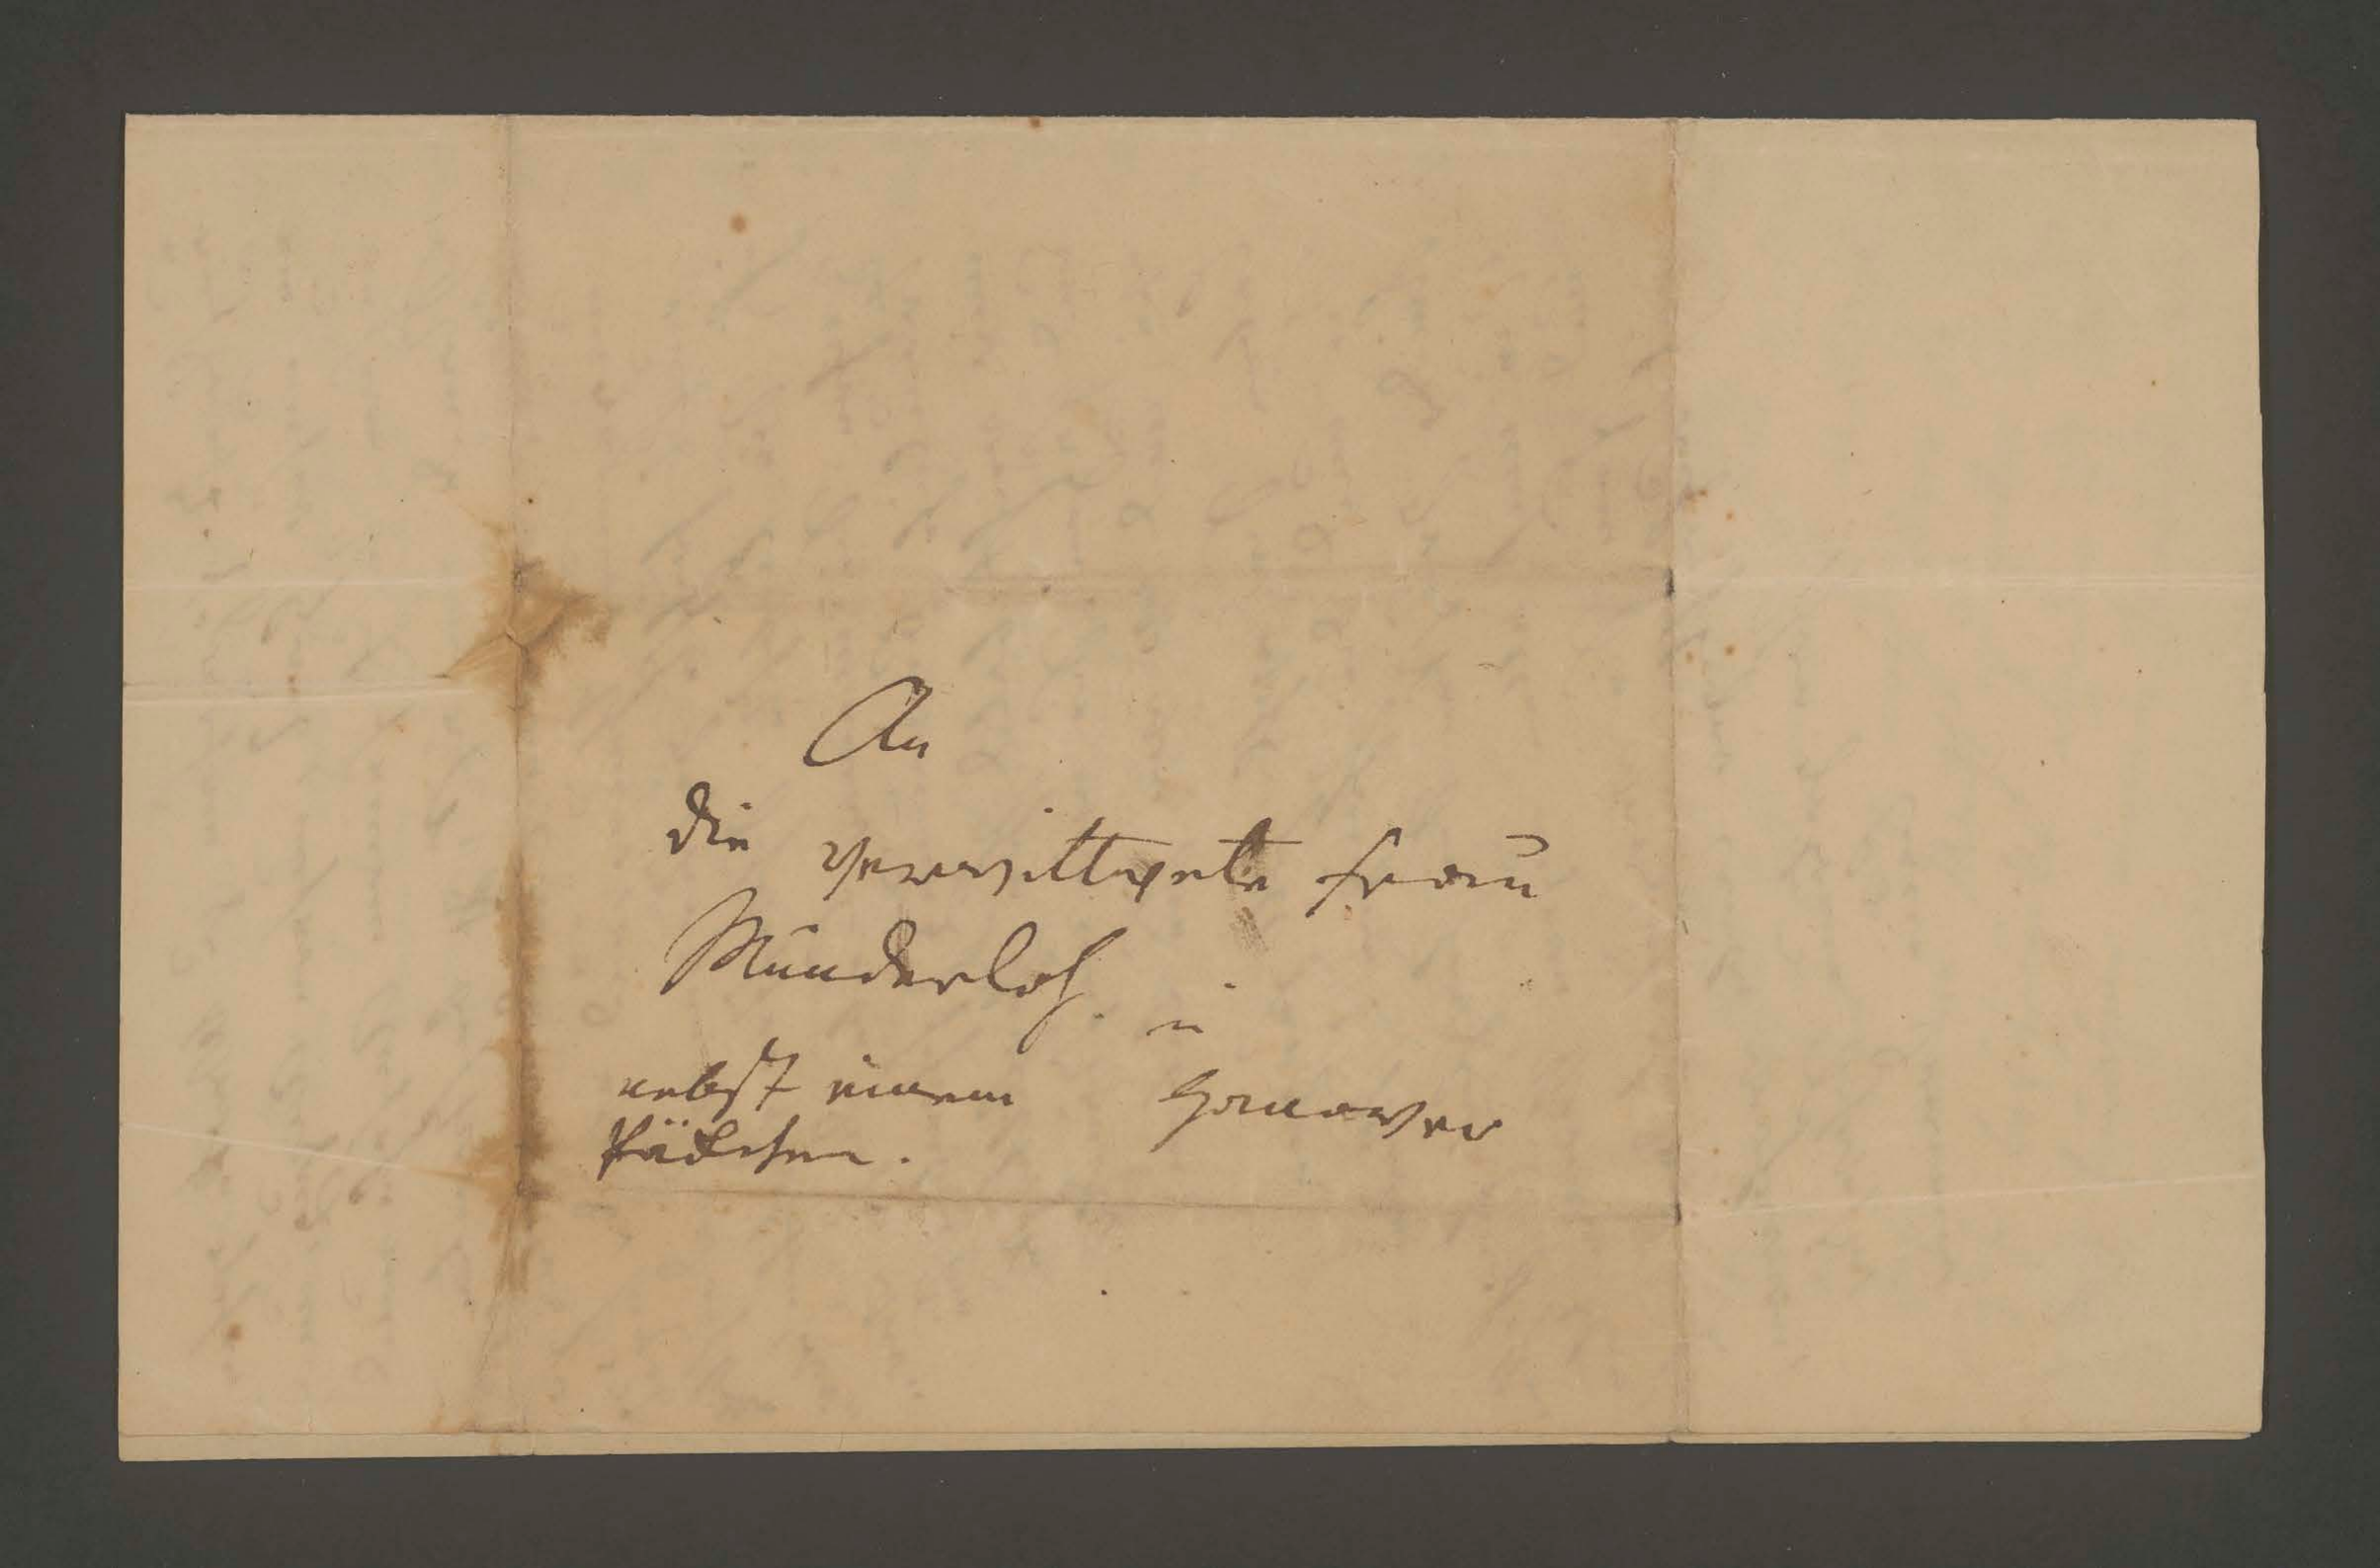 An
die verwittwete Frau
Munderloh.
in
nebst einem Hanover
Päckchen.